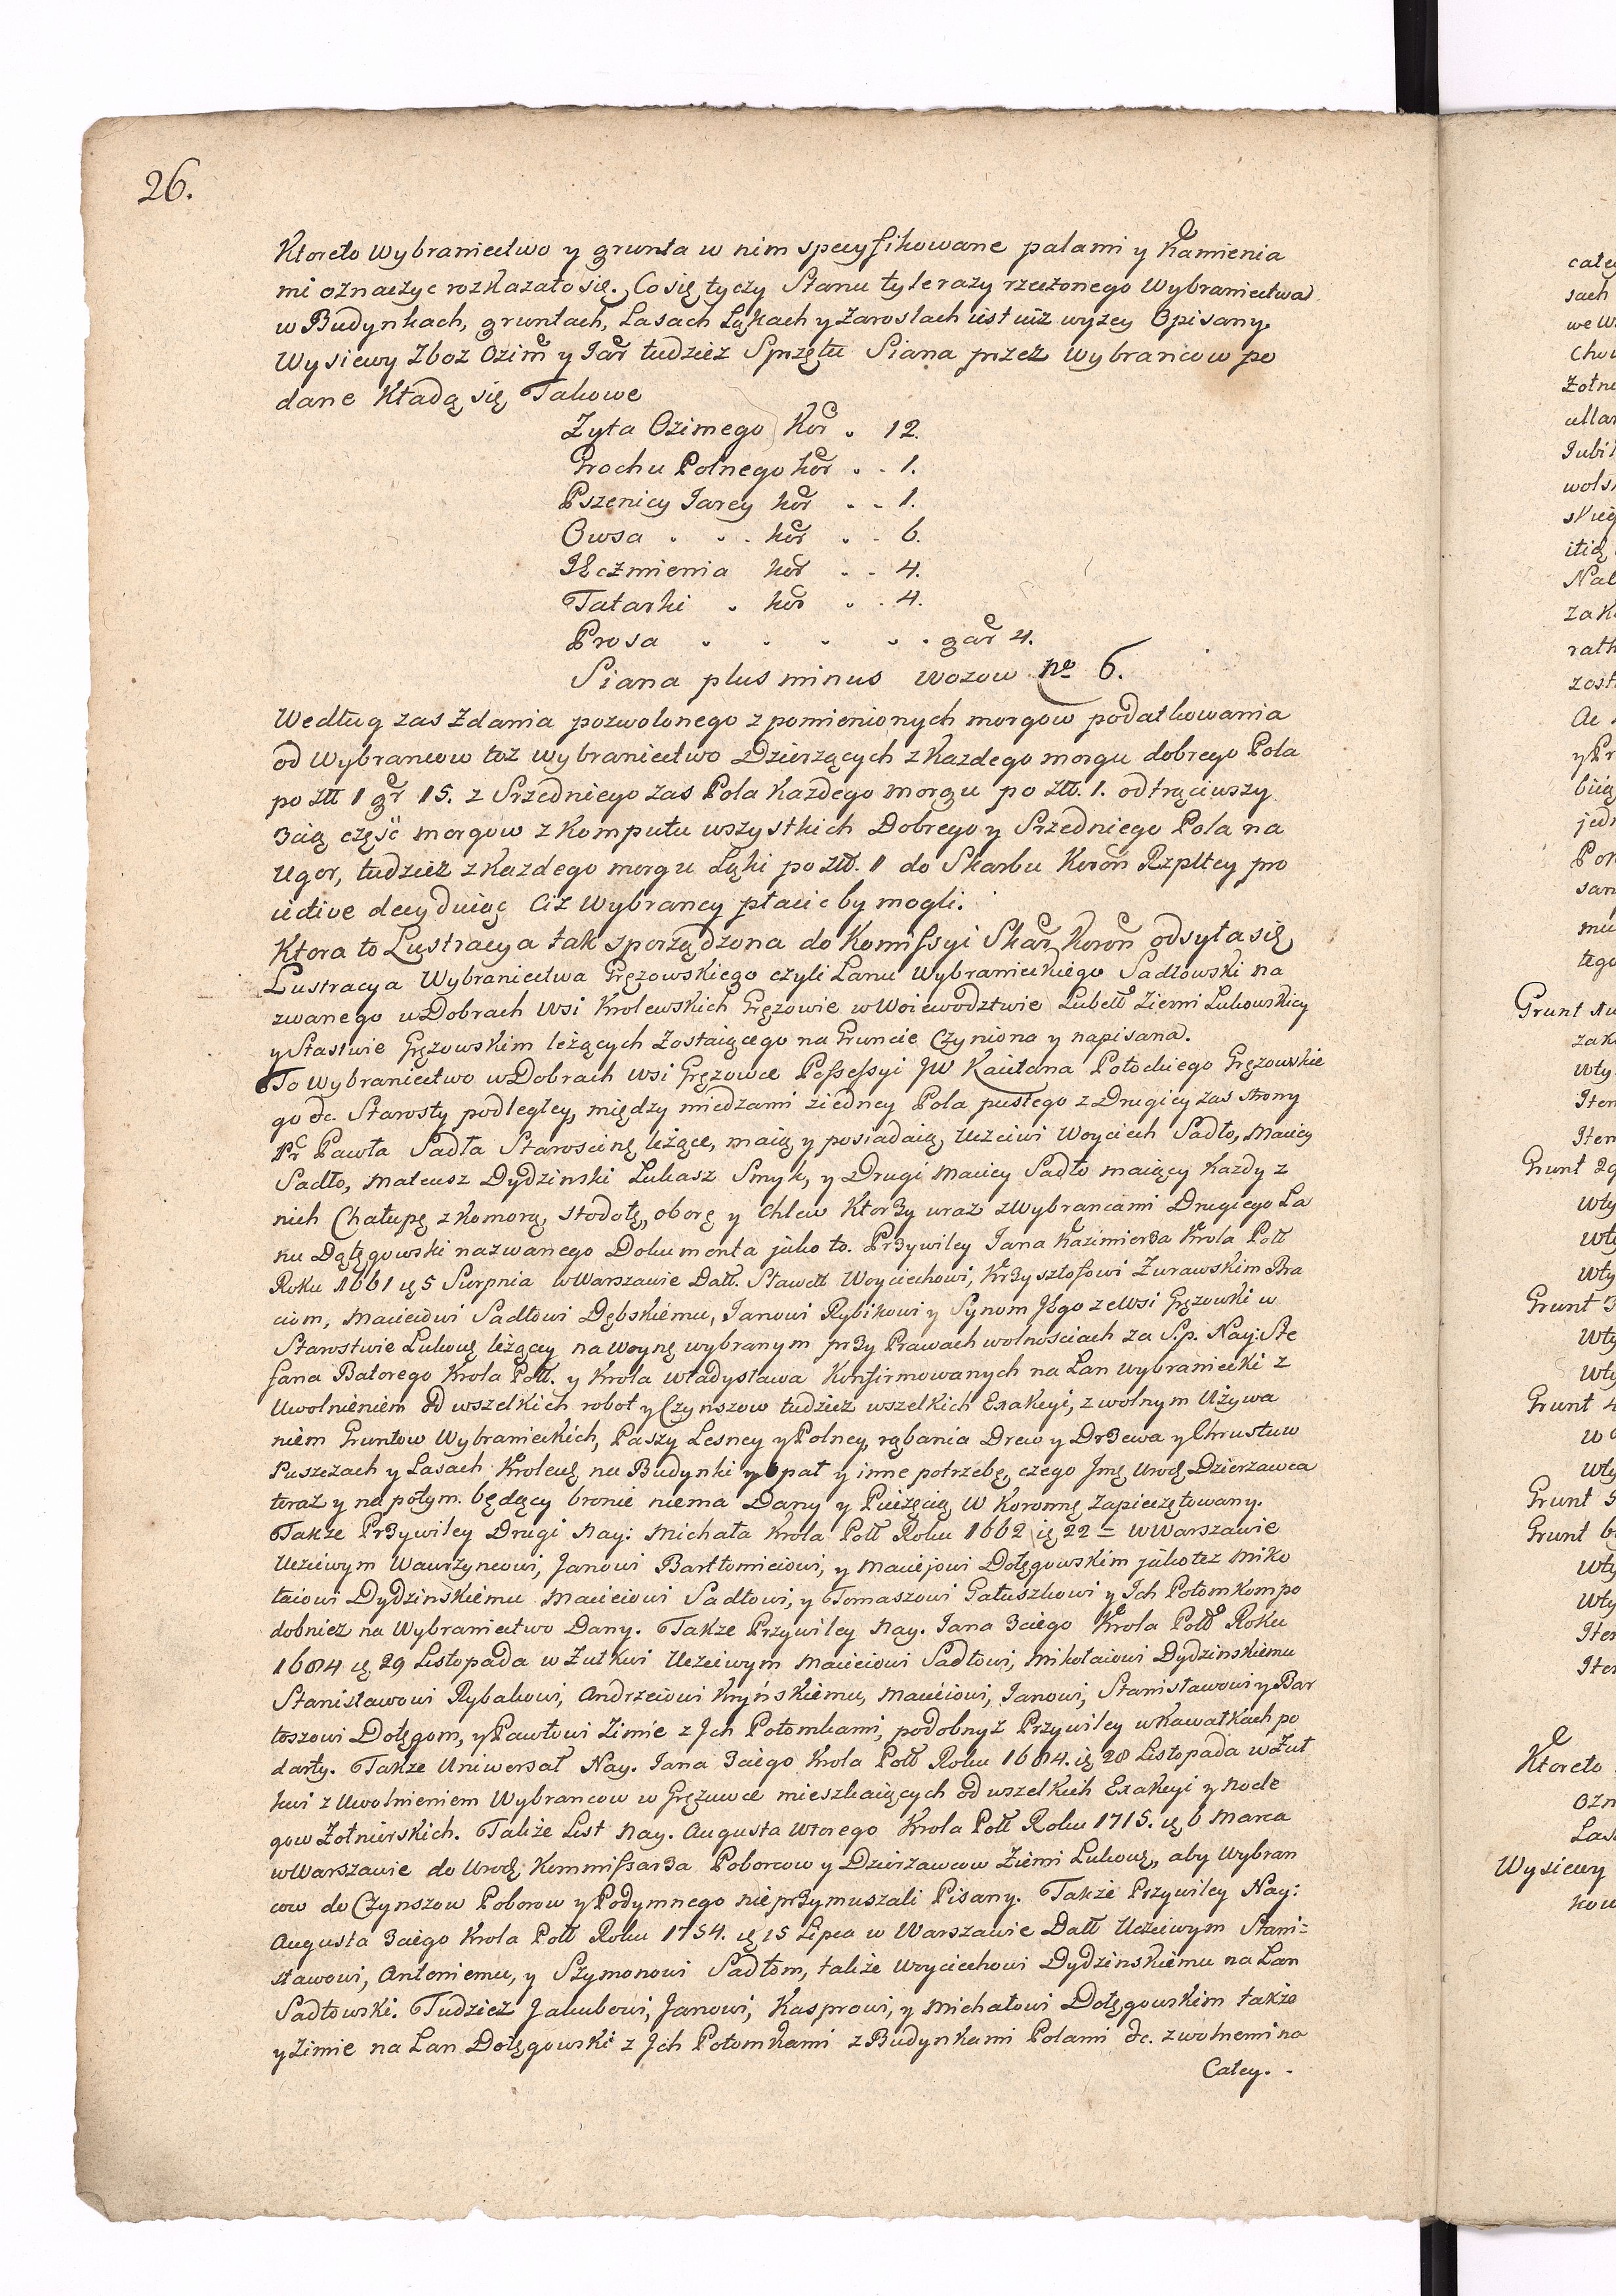 26.
Ktoreto Wybraniectwo y grunta w nim specyfikowane palami y Kamienia
mi oznaczyc rozkazało się. Co się tyczy Stanu tylerazy rzeczonego Wybraniectwa
w Budynkach, gruntach, Lasach Łąkach y Zaroslach iest iuż wyzey Opisany.
Wysiewy Zboz Ozim y Jar tudziez Sprzętu Siana przez Wybrancow po
dane Kładą się Takowe
Zyta Ozimego Kor . 12.
Grochu Polnego kor . . 1.
Pszenicy Jarey kor . . 1.
Owsa . . . kor . . 6.
Jęczmienia kor . . 4.
Tatarki . kor . . 4.
Prosa . . . . . gar 4.
Siana plus minus wozow No 6.
Według zas Zdania pozwolonego z pomienionych morgow podatkowania
od Wybrancow toż wybraniectwo Dzierzących z Kazdego morgu dobrego Pola
po Złł 1 gr 15. z Srzedniego zas Pola Każdego morgu po Złł. 1. odtrąciwszy
3cią część morgow z Komputu wszystkich Dobrego y Srzedniego Pola na
Ugor, tudzież z Kazdego morgu Łąki po Złł. 1 do Skarbu Koron Rzpltey pro
decyduiąc Ciż Wybrancy płacic by mogli.
Ktora to Lustracya tak sporządzona do Komissyi Skar Koron odsyła się
Lustracya Wybraniectwa Gręzowskiego czyli Lanu Wybranieckiego Sadłowski na
zwanego w Dobrach Wsi Krolewskich Gręzowie w Woiewodztwie Lubell Ziemi Lukowskiey
y Stastwie Gręzowskim leżących Zostaiącego na Gruncie Czyniona y napisana.
To Wybraniectwo w Dobrach Wsi Gręzowce Possessyi JW Kaietana Potockiego Gręzowskie
go &c. Starosty podległey, między miedzami z iedney Pola pustego z Drugiey zas strony
Pawła Sadła Staroscinę leżące, maią y posiadaią Uczciwi Woyciech Sadło, Maciey
Sadło, Mateusz Dydzinski Lukasz Smyk, y Drugi Maciey Sadło maiący Kazdy z
nich Chałupę z Komorą, stodołę, oborę y Chlew Ktorzy wraz z Wybrancami Drugiego La
nu Dołęgowski nazwanego Dokumenta jako to. Przywiley Jana Kazimierza Krola Poll
Roku 1661 ię 5 Sierpnia w Warszawie Datt. Sławett Woyciechowi, Krzysztofowi Zurawskim Bra
ciom, Macieiowi Sadłowi Dębskiemu, Janowi Rybikowi y Synom Jego ze Wsi Gręzowki w
Starostwie Lukow leżącey na woynę wybranym przy Prawach wolnosciach za S.p. Nay: Ste
fana Batorego Krola Poll. y Krola Władysława Konfirmowanych na Lan wybraniecki z
Uwolnieniem od wszelkich robot y Czynszow tudziez wszelkich Exakcyi, z wolnym Używa
niem Gruntow Wybranieckich, Paszy Lesney y Polney, rąbania Drew y Drzewa y Chrustu w
Puszczach y Lasach Krolews na Budynki y opał y inne potrzebę, czego Urod Dzierzawca
teraz y na potym. będący bronic niema Dany y Pieczęcią W Koronną Zapieczętowany.
Takze Przywiley Drugi Nay: Michała Krola Poll Roku 1662 ię 22 = w Warszawie
Uczciwym Wawrzyncowi, Janowi Bartłomieiowi, y Maciejowi Dołęgowskim jako tez Miko
łaiowi Dydzinskiemu Macieiowi Sadłowi, y Tomaszowi Gałuszkowi y Ich Potomkom po
dobniez na Wybraniectwo Dany. Takze Przywiley Nay. Jana 3ciego Krola Poll Roku
1684 ię 29 Listopada w Żułkwi Uczciwym Macieiowi Sadłowi, Mikołaiowi Dydzinskiemu
Stanisławowi Rybakowi, Andrzeiowi Kryńskiemu, Macieiowi, Janowi, Stanisławowi y Bar
toszowi Dołęgom, y Pawłowi Zimie z Jch Potomkami, podobnyż Przywiley w Kawałkach po
darty. Takze Uniwersał Nay. Jana 3ciego Krola Poll Roku 1684. ię 28 Listopada w Żuł
kwi z Uwolnieniem Wybrancow w Gręzowce mieszkaiących od wszelkich Exakcyi y Nocle
gow Żołnierskich. Także List Nay. Augusta Wtorego Krola Poll Roku 1715. ię 6 Marca
w Warszawie do Urod Kommissarza Poborcow y Dzierzawcow Ziemi Lukow, aby Wybran
cow do Czynszow Poborow y Podymnego nieprzymuszali Pisany. Także Przywiley Nay:
Augusta 3ciego Krola Poll Roku 1754. ię 15 Lipca w Warszawie Datt Uczciwym Stani=
sławowi, Antoniemu, y Szymonowi Sadłom, także Woyciechowi Dydzinskiemu na Lan
Sadłowski. Tudzież Jakubowi, Janowi, Kasprowi, y Michałowi Dołęgowskim także
y Zimie na Lan Dołęgowski z Jch Potomkami z Budynkami Polami &c. z wolnemi na
Całey. .
sach
Jubil
wols
itią
Nal
zak
rath
zost
jedn
mu
tego
Grunt
zak
wty
Item
Item
Grunt 2
wty
wty
wty
Grunt 3
wty
wty
Grunt 4
wty
Grunt 5
Grunt 6
wty
wty
Item
Item
Ktoreto
ozn
Las
Wysiewy
kow